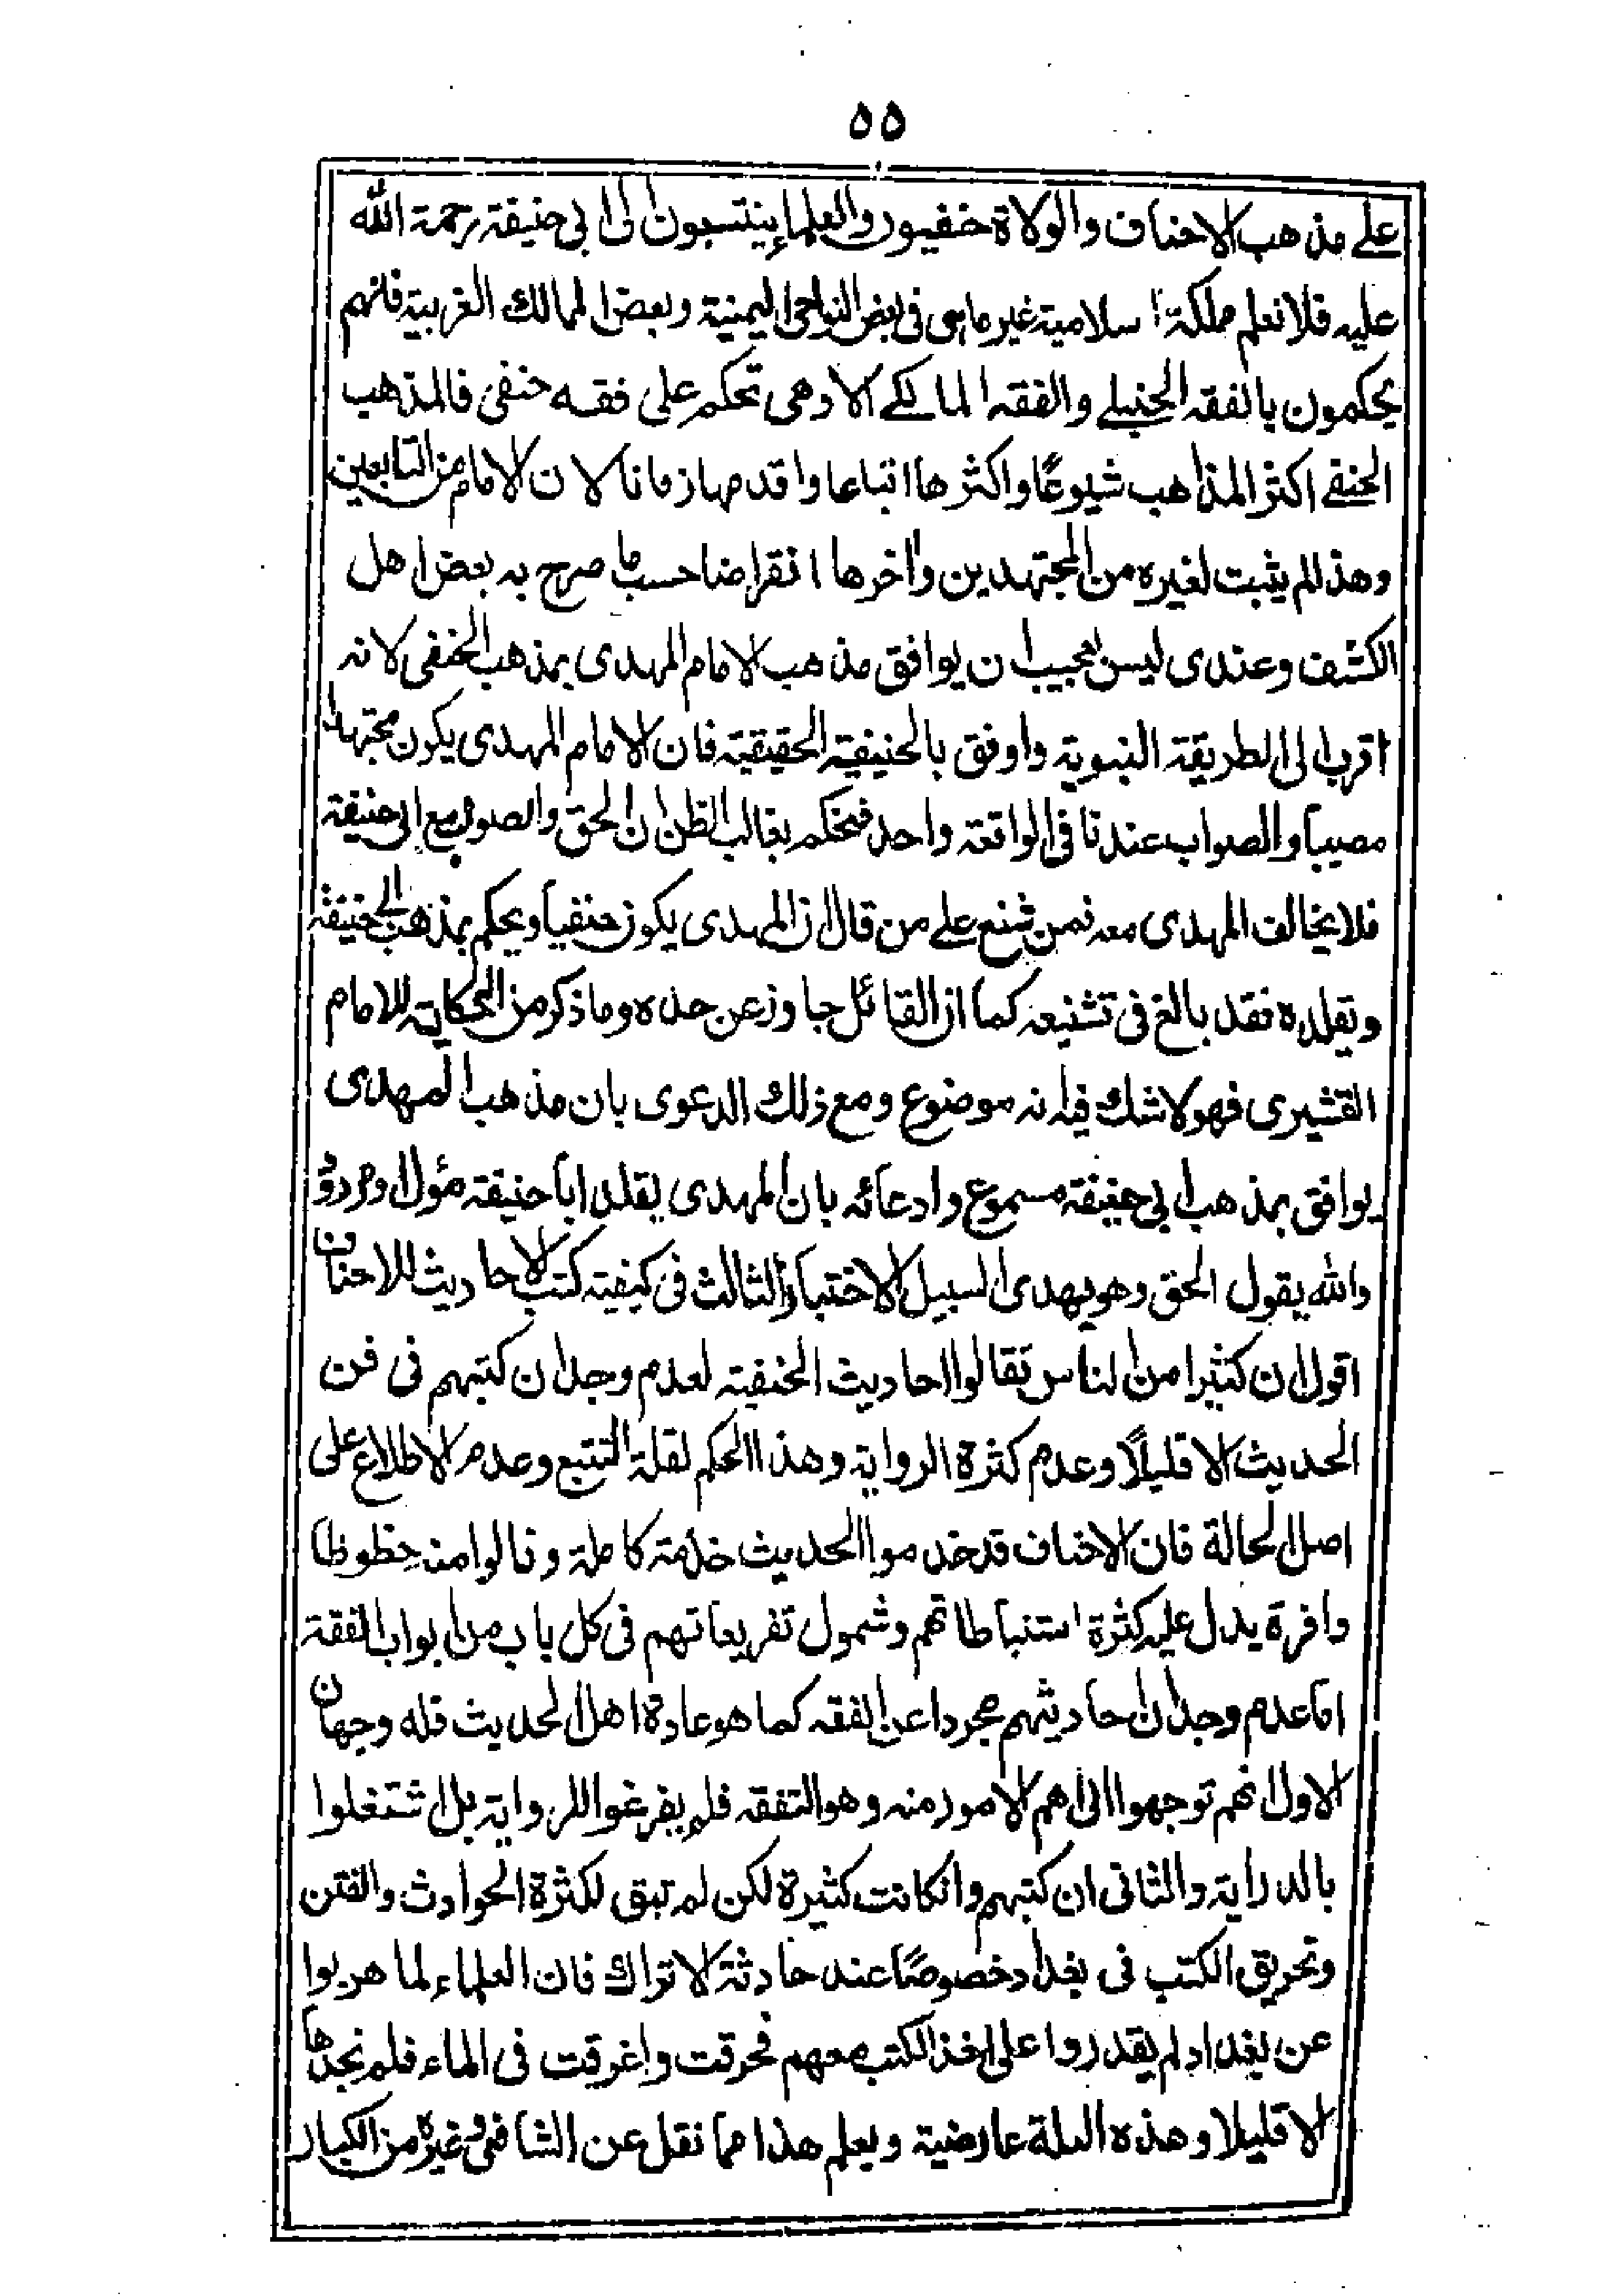 ٥٥
على مذهب الاحناف والولاة حنفيون والعلماء ينتسبون الى ابي حنيفة رحمة الله
عليه فلا نعلم مملكة اسلامية غير ما هى فى بعض النواحى اليمنية وبعض الممالك الغربية فانهم
يحكمون بالفقه الحنبلے والفقه المالكے الا وهى تحكم على فقه حنفى فالمذهب
الحنفے اكثر المذاهب شيوعًا واكثرها اتباعا واقدمها زمانا لان الامام من التابعين
وهذا لم يثبت لغيره من المجتهدين وآخرها انقراضا حسب ما صرح به بعض اهل
الكشف وعندى ليس العجيب ان يوافق مذهب الامام المهدى بمذهب الحنفى لانه
اقرب الى الطريقة النبوية واوفق بالحنيفية الحقيقية فان الامام المهدى يكون مجتهدا
مصيبا والصواب عندنا فى الواقعة واحد فنحكم بغالب الظن ان الحق والصواب مع ابى حنيفة
فلا يخالف المهدى معه فمن شنع على من قال ان المهدى يكون حنفيا ويحكم بمذهب ابى حنيفة
ويقلده فقد بالغ فى تشنيعه كما ان القائل جاوز عن حده وما ذكر من الحكاية للامام
القشيرى فهو لا شك فى انه موضوع ومع ذلك الدعوى بان مذهب المهدى
يوافق بمذهب ابي حنيفة مسموع وادعائه بان المهدى يقلد ابا حنيفة مؤول او مردود
والله يقول الحق وهو يهدى السبيل الاختبار الثالث فى كيفية كتب الاحاديث للاحناف
اقول ان كثيرا من الناس تقالوا احاديث الحنفية لعدم وجدان كتبهم فى فن
الحديث الا قليلًا وعدم كثرة الرواية وهذا الحكم لقلة التتبع وعدم الاطلاع على
اصل الحالة فان الاحناف قد خدموا الحديث خدمة كاملة ونالوا منه حظوظا
وافرة يدل عليه كثرة استنباطاتهم وشمول تفريعاتهم فى كل باب من ابواب الفقة
اما عدم وجدان احاديثهم مجردا عن الفقه كما هو عادة اهل الحديث فله وجهان
الاول انهم توجهوا الى اهم الامور منه وهو التفقه فلم يفرغوا للرواية بل اشتغلوا
بالدراية والثانى ان كتبهم وانكانت كثيرة لكن لم تبق لكثرة الحوادث والفتن
وتحريق الكتب فى بغداد خصوصًا عند حادثة الاتراك فان العلماء لما هربوا
عن بغداد لم يقدروا على اخذ الكتب معهم فحرقت واغرقت فى الماء فلم نجدها
الا قليلا وهذه العلة عارضية ويعلم هذا مما نقل عن الشافعى وغيره من الكبار